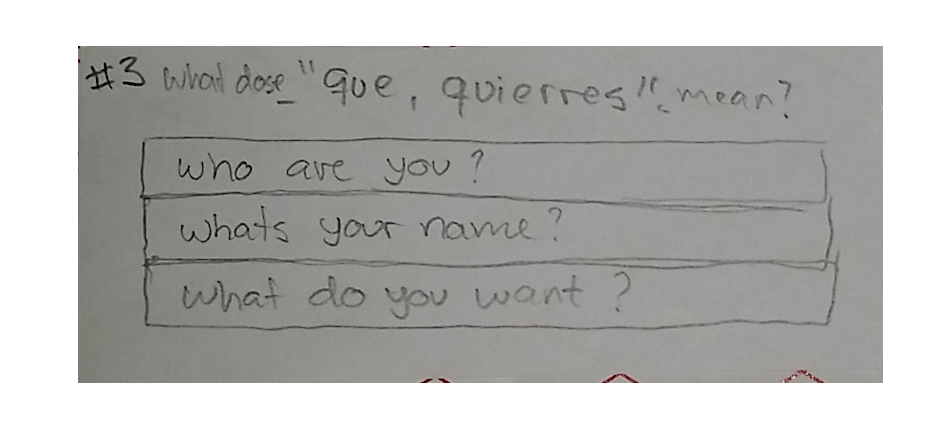 #3 what dose "Que, quierres" mean?
who are you?
whats your name?
what do you want?